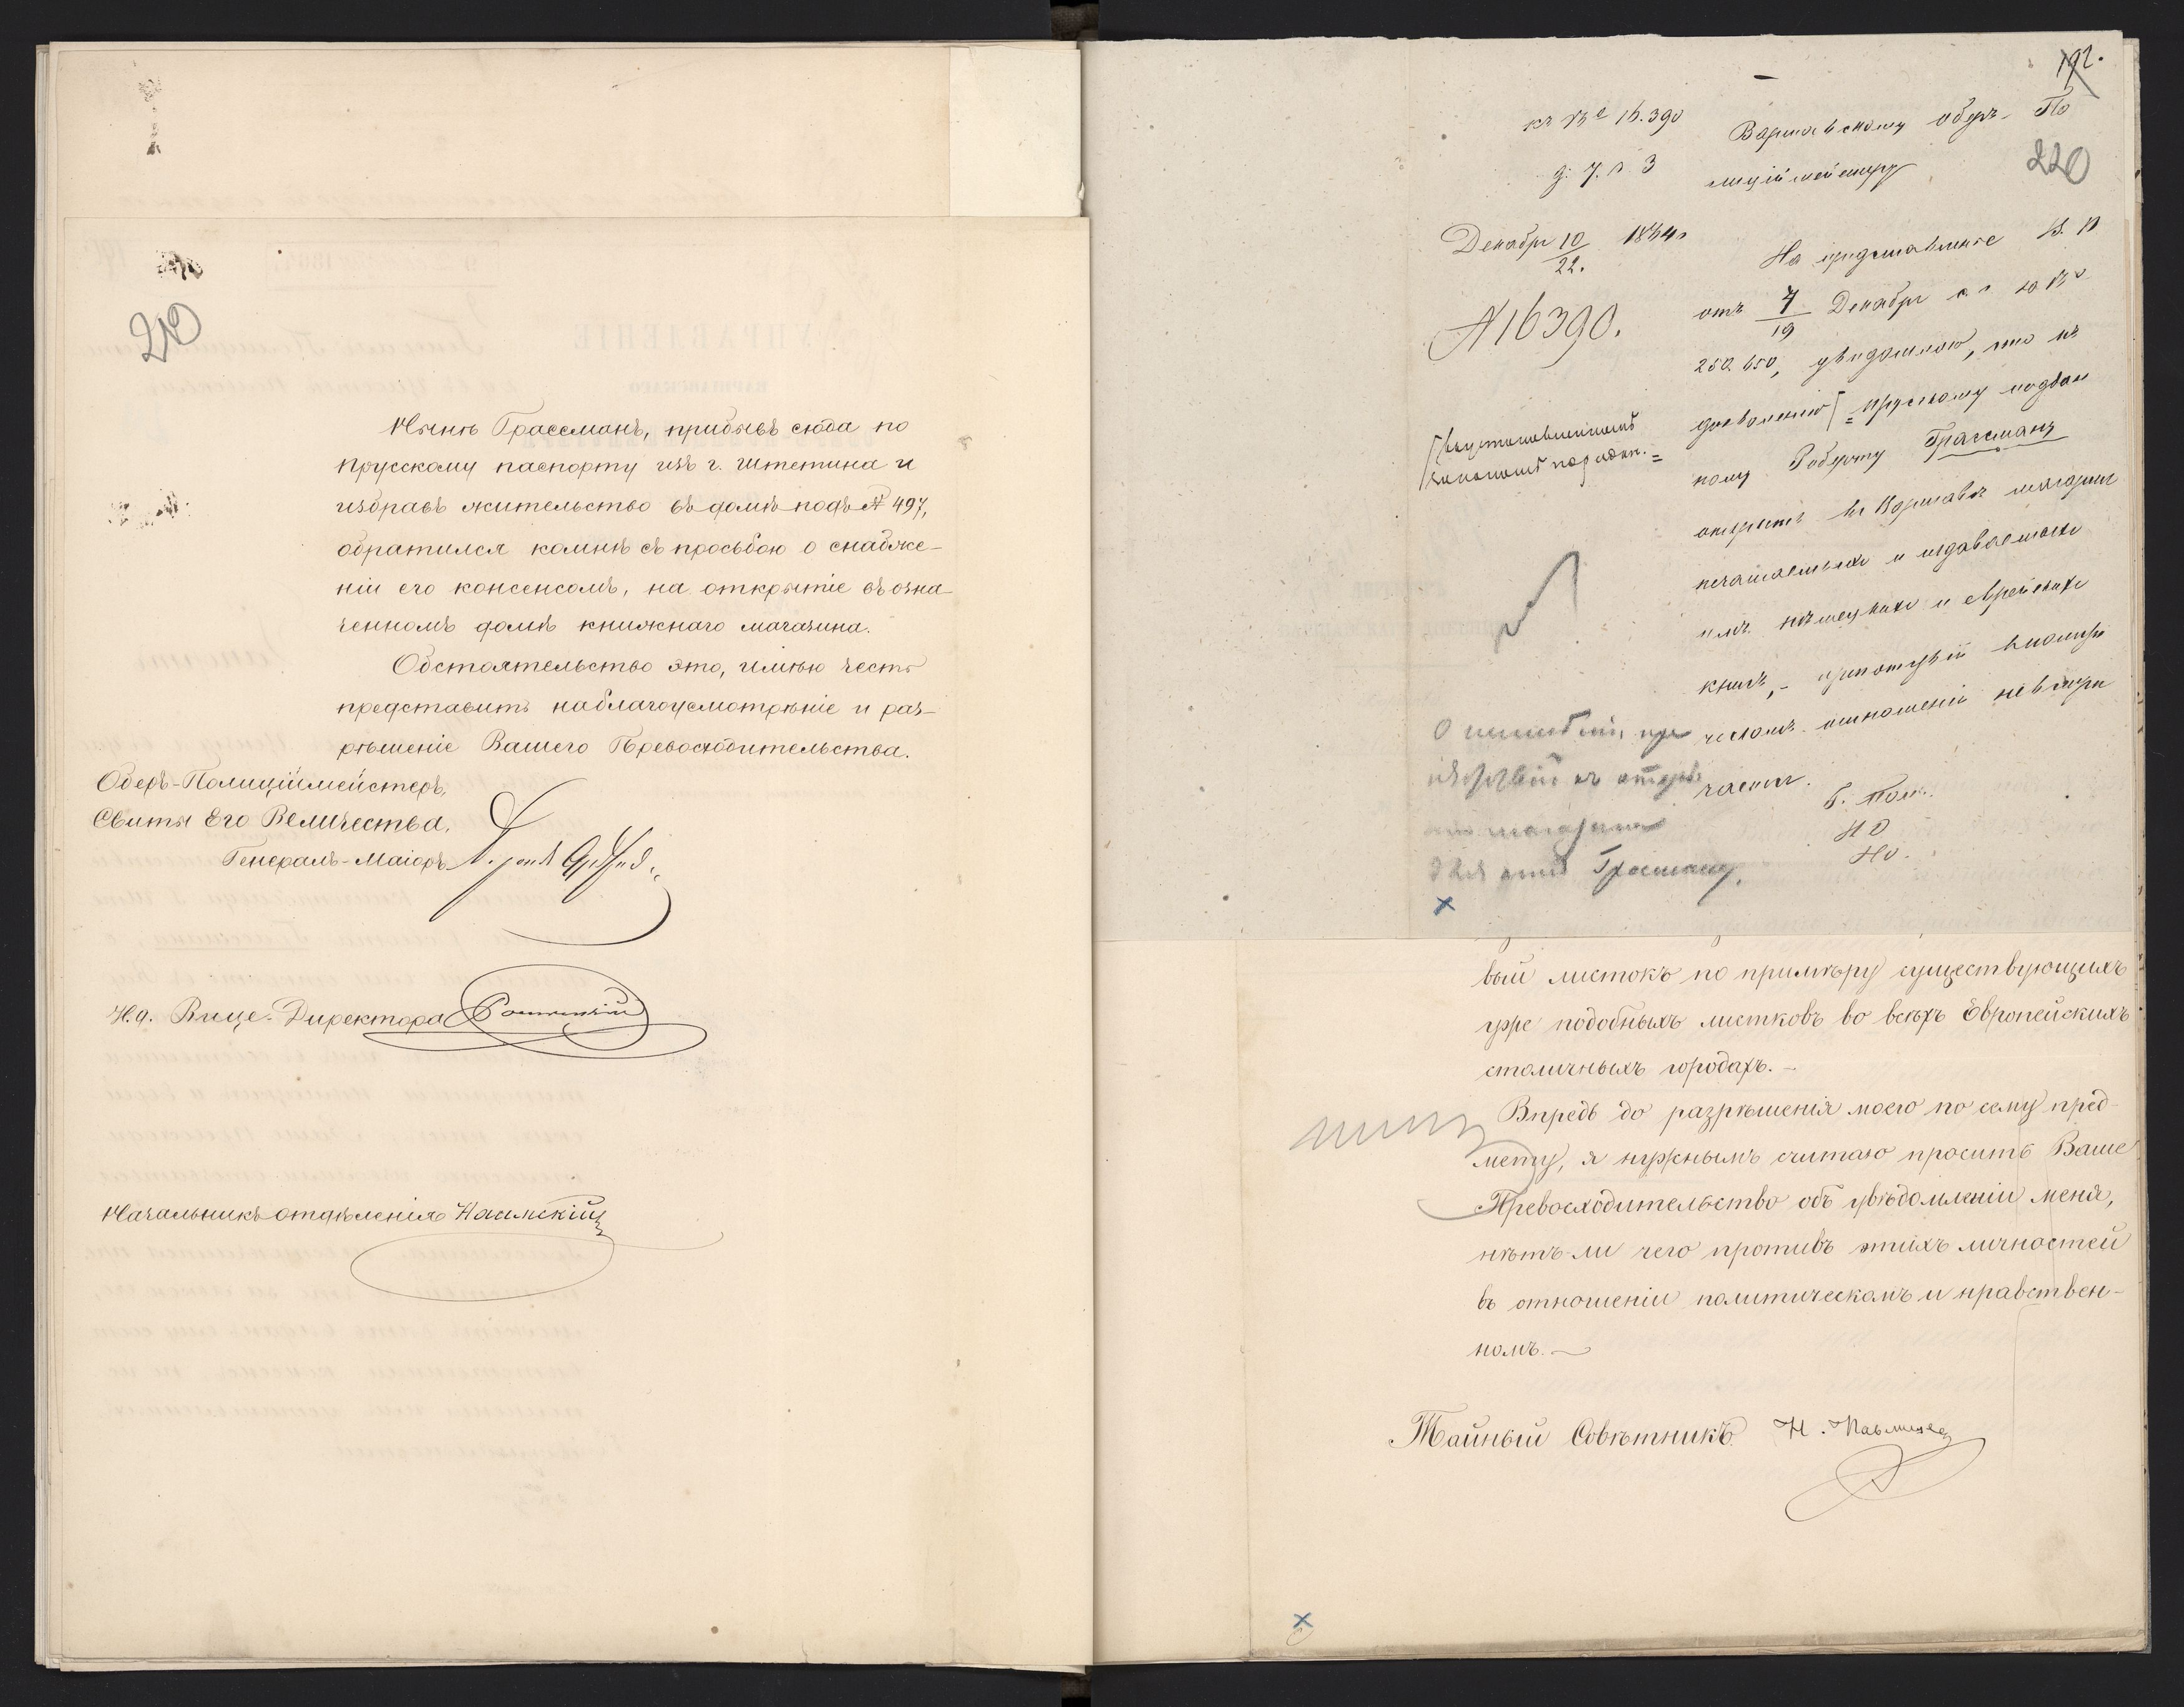 210
Нынѣ Грассманъ, прибывъ сюда по
прусскому паспорту изъ г. Штетина и
избравъ жительство въ домѣ подъ № 497,
обратился комнѣ съ просьбою о снабже-
ніи его консенсомъ, на открытіе въ озна-
ченномъ домѣ книжнаго магазина.
Обстоятельство это, имѣю честь
представить на благоусмотрѣніе и раз-
рѣшеніе Вашего Превосходительства.
Оберъ-Полиціймейстеръ,
Свиты Его Величества,
Генералъ-Маіоръ
И.д. Вице-Директора
Начальникъ отдѣленія
192.
220
къ № 16.390
Варшавскому Оберъ-По
лиціймейстру
Декабря 10/22. 1864
№ 16390.
На представленіе В. П
отъ 7/19 Декабря с. г. за №
250.650, увѣдомляю, что къ
дозволенію прусскому поддан
ному Роберту Грассману
въ установленномъ
законномъ порядкѣ
открыть въ Варшавѣ магазинъ
печатаемыхъ и издаваемыхъ
имъ нѣмецкихъ и еврейскихъ
книгъ, - препятствій въ полити
ческомъ отношеніи не встрѣ
чаетъ.
О неимѣніи пре
пятствій къ откры
тію магазина
Грасману.
вый листокъ по примѣру существующихъ
уже подобныхъ листковъ во всѣхъ Европейскихъ
столичныхъ городахъ. -
Впредь до разрѣшенія моего по сему пред-
мету, я нужнымъ считаю просить Ваше
Превосходительство объ увѣдомленіи меня,
нѣтъ-ли чего противъ этихъ личностей
въ отношеніи политическомъ и нравствен-
номъ. -
Тайный Совѣтникъ Н. Павлищев